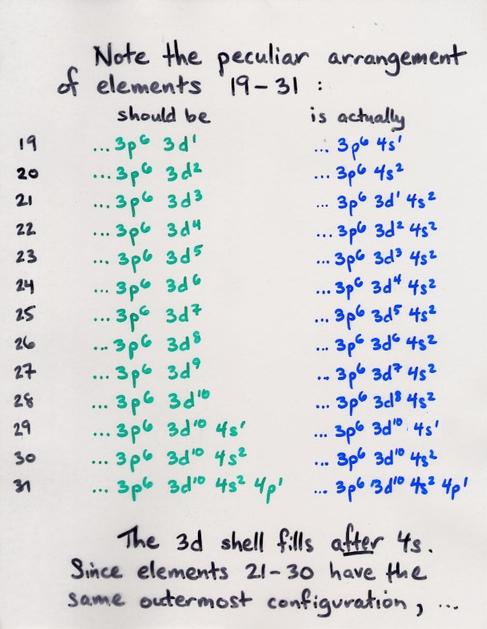 Note the peculiar arrangement
of elements 19-31 :
should be is actually
19 ...3p⁶ 3d¹ ... 3p⁶ 4s¹
20 ...3p⁶ 3d² ... 3p⁶ 4s²
21 ...3p⁶ 3d³ ... 3p⁶ 3d¹ 4s²
22 ...3p⁶ 3d⁴ ... 3p⁶ 3d² 4s²
23 ...3p⁶ 3d⁵ ... 3p⁶ 3d³ 4s²
24 ...3p⁶ 3d⁶ ... 3p⁶ 3d⁴ 4s²
25 ...3p⁶ 3d⁷ ... 3p⁶ 3d⁵ 4s²
26 ...3p⁶ 3d⁸ ... 3p⁶ 3d⁶ 4s²
27 ...3p⁶ 3d⁹ ... 3p⁶ 3d⁷ 4s²
28 ...3p⁶ 3d¹⁰ ... 3p⁶ 3d⁸ 4s²
29 ...3p⁶ 3d¹⁰ 4s¹ ... 3p⁶ 3d¹⁰ 4s¹
30 ...3p⁶ 3d¹⁰ 4s² ... 3p⁶ 3d¹⁰ 4s²
31 ...3p⁶ 3d¹⁰ 4s² 4p¹ ... 3p⁶ 3d¹⁰ 4s² 4p¹
The 3d shell fills after 4s.
Since elements 21-30 have the
same outermost configuration, ...